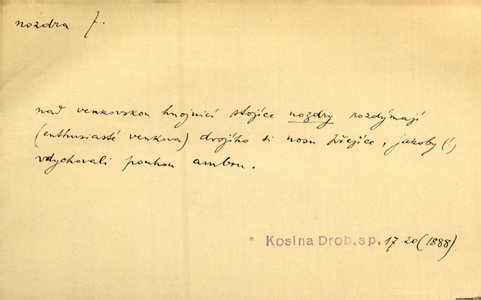 nozdra f.
nad venkovskou hnojnicí stojíce nozdry rozdýmají
(enthusiasté venkova) dvojího si nosu přejíce, jakoby (!)
vdychovali pouhou ambru.
* Kosina Drob. sp. 17 20 (1888)